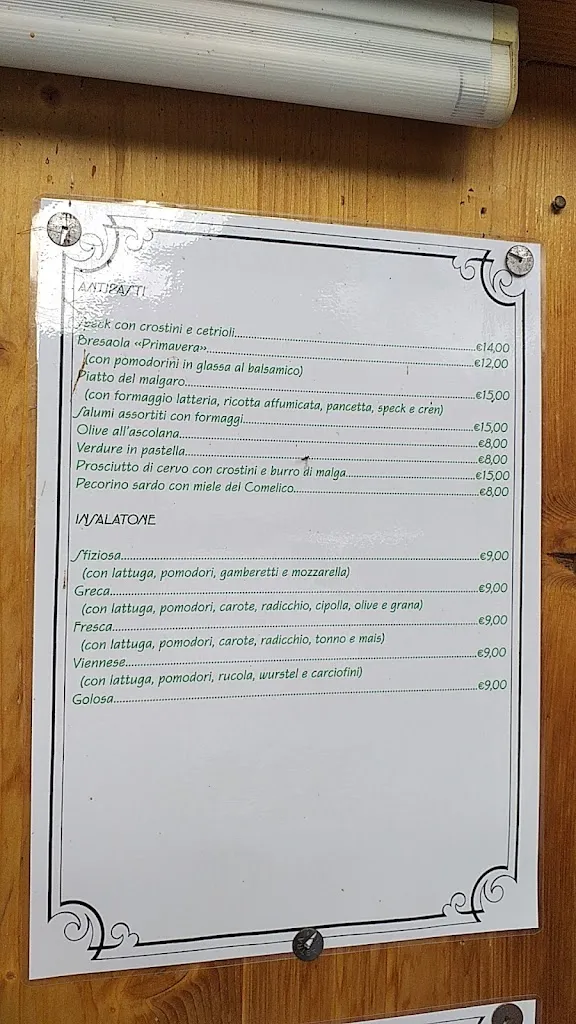 ANTIPASTI
Speck con crostini e cetrioli..........€14,00
Bresaola «Primavera»..........€12,00
(con pomodorini in glassa al balsamico)
Piatto del malgaro..........€15,00
(con formaggio latteria, ricotta affumicata, pancetta, speck e cren)
Salumi assortiti con formaggi..........€15,00
Olive all'ascolana..........€8,00
Verdure in pastella..........€8,00
Prosciutto di cervo con crostini e burro di malga..........€15,00
Pecorino sardo con miele del Comelico..........€8,00
INSALATONE
Sfiziosa..........€9,00
(con lattuga, pomodori, gamberetti e mozzarella)
Greca..........€9,00
(con lattuga, pomodori, carote, radicchio, cipolla, olive e grana)
Fresca..........€9,00
(con lattuga, pomodori, carote, radicchio, tonno e mais)
Viennese..........€9,00
(con lattuga, pomodori, rucola, wurstel e carciofini)
Golosa..........€9,00